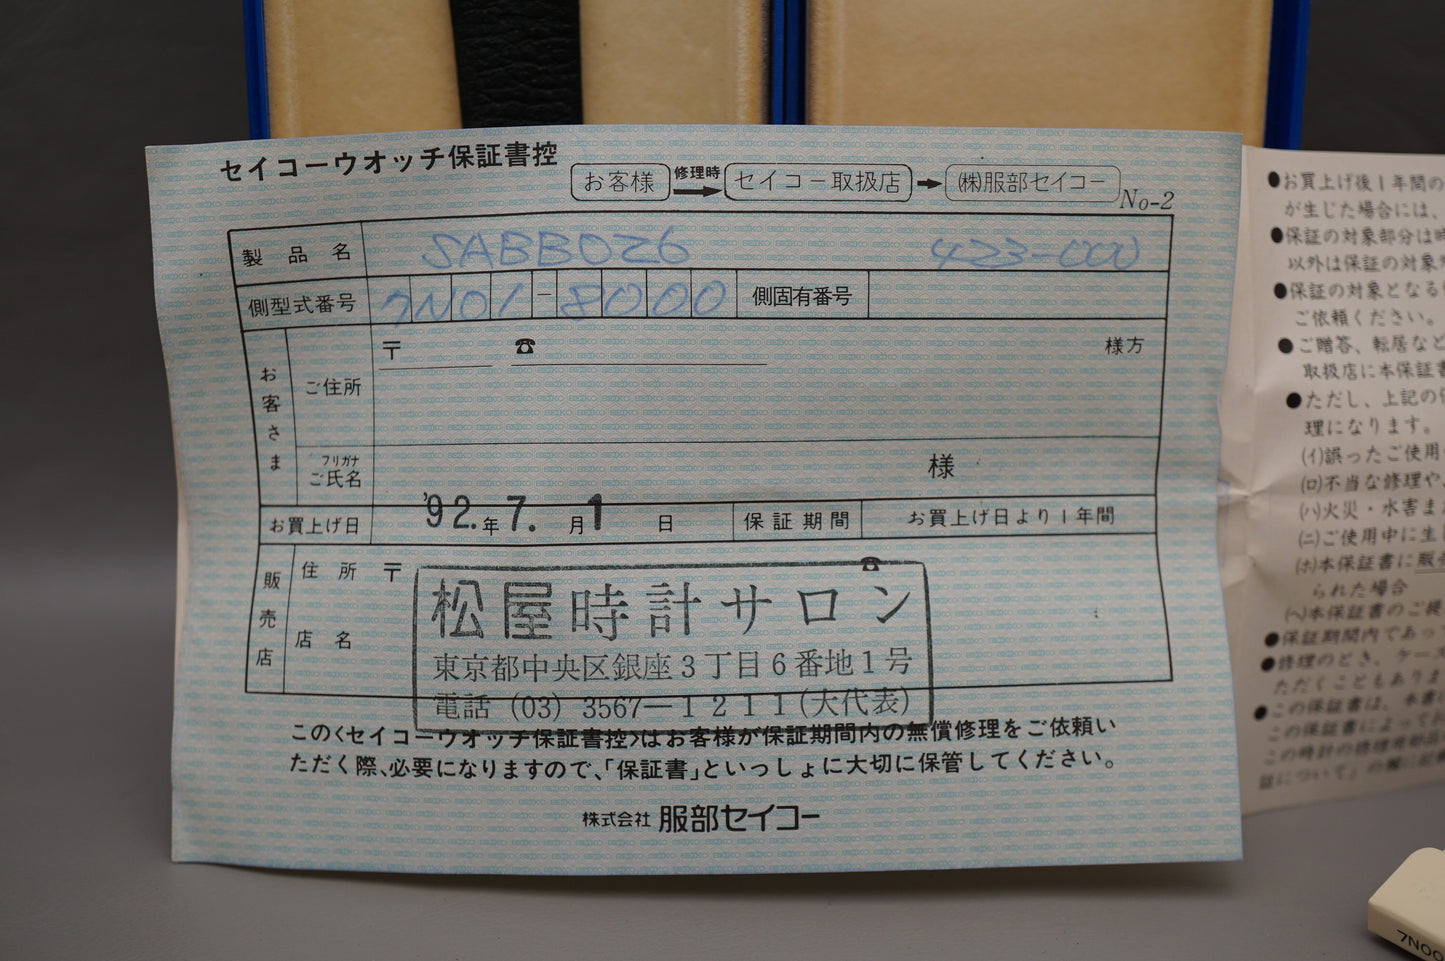 セイコーウオッチ保証書控
お客様 修理時 → セイコー取扱店 → ㈱服部セイコー
No-2
製品名 SABB026 423-000
側型式番号 7N01-8000 側固有番号
お客さま
ご住所 〒 ☎ 様方
フリガナ
ご氏名 様
お買上げ日 '92.年7.月1日 保証期間 お買上げ日より1年間
販売店
住所 〒 ☎
店名
松屋時計サロン
東京都中央区銀座3丁目6番地1号
電話 (03) 3567―1211(大代表)
このくセイコーウオッチ保証書控>はお客様が保証期間内の無償修理をご依頼い
ただく際、必要になりますので、「保証書」といっしょに大切に保管してください。
株式会社 服部セイコー
●お買上げ後1年間の
が生じた場合には、
●保証の対象部分は時
以外は保証の対象
●保証の対象となる
ご依頼ください。
●ご贈答、転居など
取扱店に本保証書
●ただし、上記の
理になります。
(イ)誤ったご使用
(ロ)不当な修理や、
(ハ)火災・水害ま
(ニ)ご使用中に生
(ホ)本保証書に販
られた場合
(ヘ)本保証書のご提
●保証期間内であっ
●修理のとき、ケース
ただくこともありま
●この保証書は、本書
この保証書によってお
この時計の修理用部品
証について」の欄に記
7N00